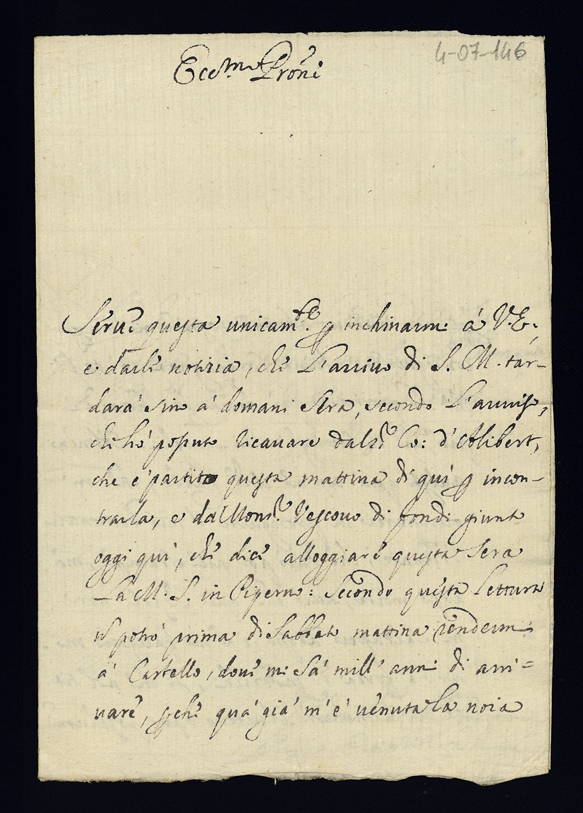 4-07-146
Ecc.mo Prone
Serve questa unicam.te p inchinarmi à V.E.
e darle notizia, che l'arrivo di S. M. tar-
darà sino à domani sera, secondo l'avviso,
che hò potuto ricavare dal S.r Co: d'Alibert,
che è partito questa mattina di quì p incon-
trarla, e da Mons.r Vescovo di Fondi giunto
oggi quì, che dice alloggiare questa sera
La M. S. in Piperno: secondo questa lettura
potrò prima di Sabbato mattina rendermi
à Castello, dove mi sà mill'anni di arri-
vare, pche quà già m'è venuta la noia